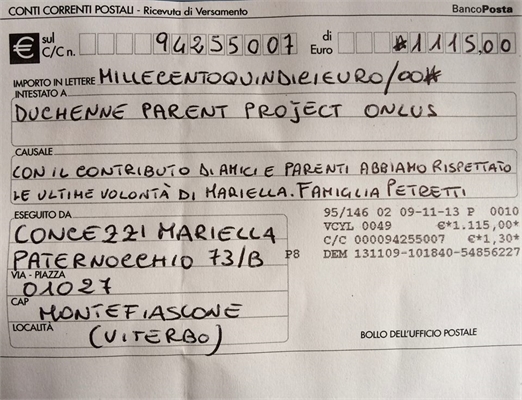 CONTI CORRENTI POSTALI - Ricevuta di Versamento BancoPosta
€ sul C/C n. 94255007 di Euro *1115,00
IMPORTO IN LETTERE MILLECENTOQUINDICIEURO/00*
INTESTATO A
DUCHENNE PARENT PROJECT ONLUS
CAUSALE
CON IL CONTRIBUTO DI AMICI E PARENTI ABBIAMO RISPETTATO
LE ULTIME VOLONTÀ DI MARIELLA. FAMIGLIA PETRETTI
ESEGUITO DA
CONCEZZI MARIELLA
PATERNOCCHIO 73/B
VIA - PIAZZA
01027
CAP
MONTEFIASCONE
LOCALITÀ
(VITERBO)
95/146 02 09-11-13 P 0010
VCYL 0049 €*1.115,00*
C/C 000094255007 €*1,30*
P8 DEM 131109-101840-54856227
BOLLO DELL'UFFICIO POSTALE